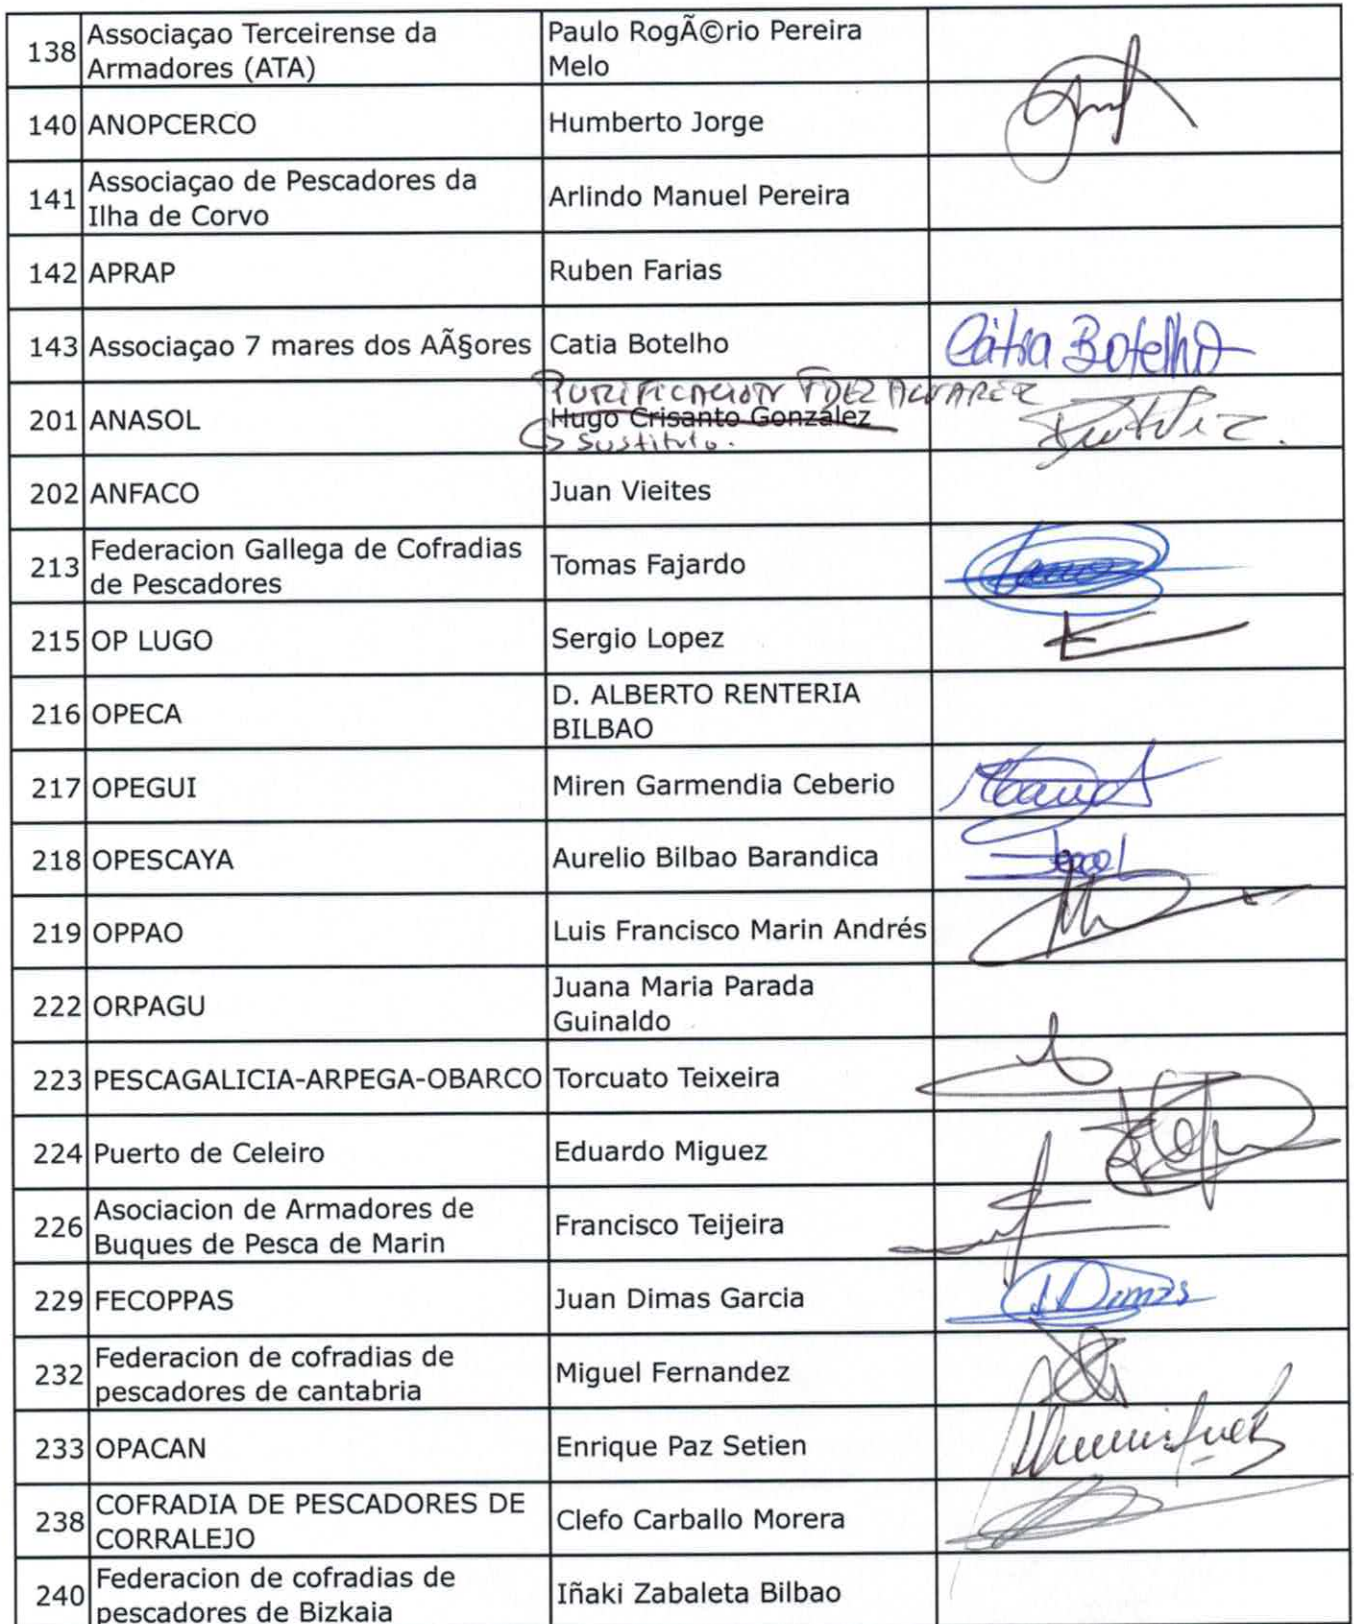 138 Associaçao Terceirense da Armadores (ATA) Paulo RogÃ©rio Pereira Melo
140 ANOPCERCO Humberto Jorge
141 Associaçao de Pescadores da Ilha de Corvo Arlindo Manuel Pereira
142 APRAP Ruben Farias
143 Associaçao 7 mares dos AÃ§ores Catia Botelho Cátia Botelho
PURIFICACION FDEZ ALVAREZ
201 ANASOL Hugo Crisanto González
Sustituto.
202 ANFACO Juan Vieites
213 Federacion Gallega de Cofradias de Pescadores Tomas Fajardo
215 OP LUGO Sergio Lopez
216 OPECA D. ALBERTO RENTERIA BILBAO
217 OPEGUI Miren Garmendia Ceberio
218 OPESCAYA Aurelio Bilbao Barandica
219 OPPAO Luis Francisco Marin Andrés
222 ORPAGU Juana Maria Parada Guinaldo
223 PESCAGALICIA-ARPEGA-OBARCO Torcuato Teixeira
224 Puerto de Celeiro Eduardo Miguez
226 Asociacion de Armadores de Buques de Pesca de Marin Francisco Teijeira
229 FECOPPAS Juan Dimas Garcia Dimas
232 Federacion de cofradias de pescadores de cantabria Miguel Fernandez
233 OPACAN Enrique Paz Setien
238 COFRADIA DE PESCADORES DE CORRALEJO Clefo Carballo Morera
240 Federacion de cofradias de pescadores de Bizkaia Iñaki Zabaleta Bilbao